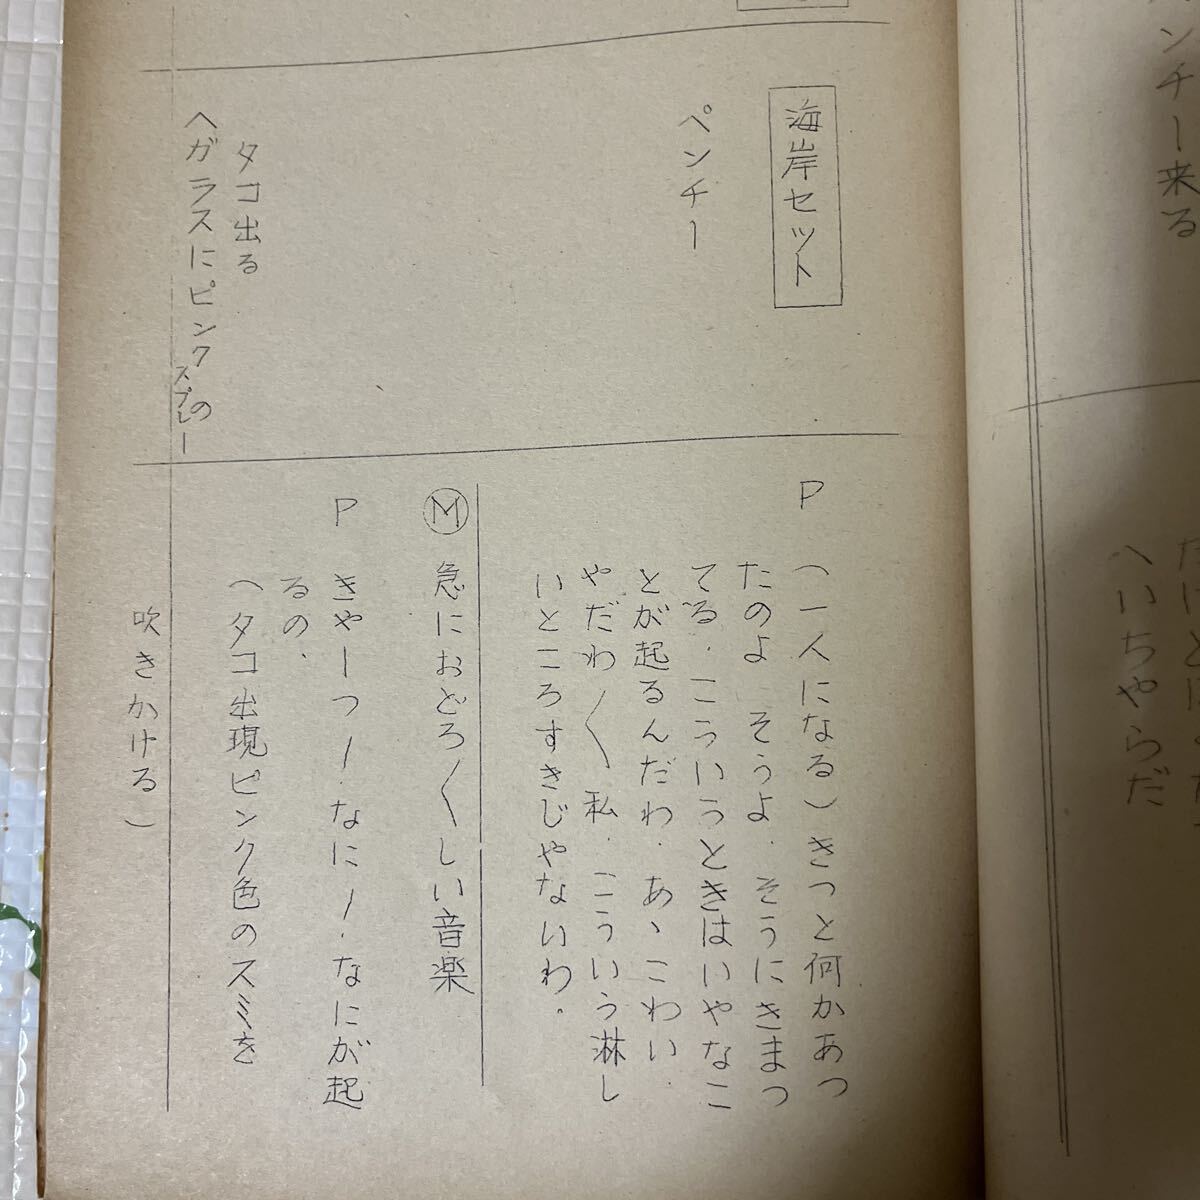 ンチー来る
へいちやらだ
海岸セット
ペンチー
タコ出る
(ガラスにピンクの
スプレー
P (一人になる)きっと何かあつ
たのよ そうよ.そうにきまつ
てる.こういうときはいやなこ
とが起るんだわ.あゝこわい.
やだわ〱 私.こういう淋し
いところすきじやないわ。
Ⓜ 急におどろ〱しい音楽
P きやーつ!.なに!.なにが起
るの.
(タコ出現ピンク色のスミを
吹きかける)